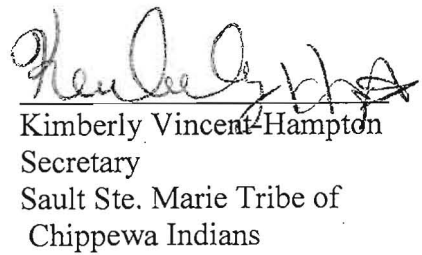 Kimberly Vincent-Hampton
Secretary
Sault Ste. Marie Tribe of
Chippewa Indians